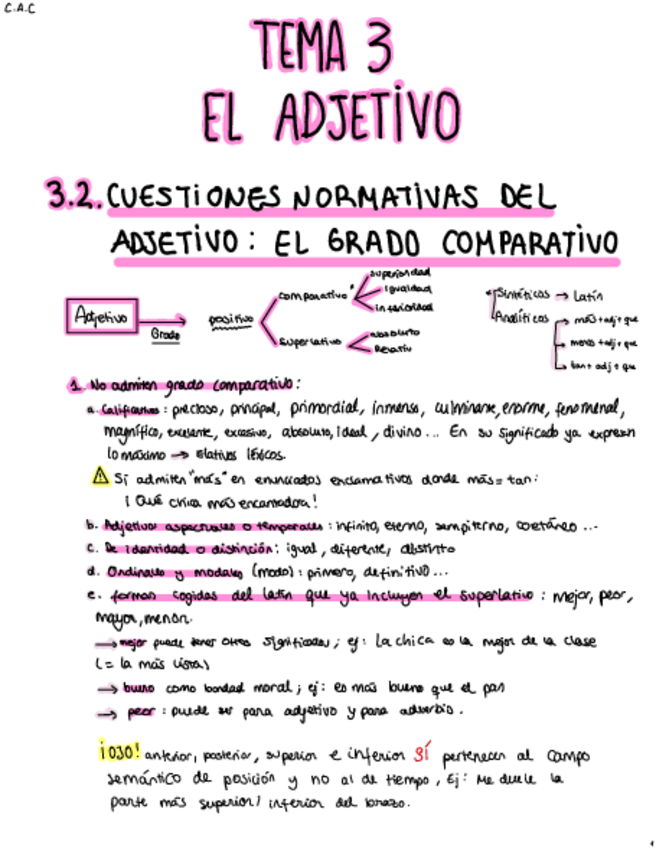 C.A.C
TEMA 3
EL ADJETIVO
3.2. CUESTIONES NORMATIVAS DEL
ADJETIVO: EL GRADO COMPARATIVO
Adjetivo
Grado
positivo
comparativo
superioridad
igualdad
inferioridad
superlativo
absoluto
Relativo
Sintéticos → Latín
Analíticos → más + adj + que
→ menos + adj + que
→ tan + adj + que
1. No admiten grado comparativo:
a. Calificativos: precioso, principal, primordial, inmenso, culminante, enorme, fenomenal,
magnífico, excelente, excesivo, absoluto, ideal, divino... En su significado ya expresan
lo máximo → elativos léxicos.
⚠ Sí admiten "más" en enunciados exclamativos donde más = tan:
¡Qué chica más encantadora!
b. Adjetivos aspectuales o temporales: infinito, eterno, sempiterno, coetáneo ...
c. De identidad o distinción: igual, diferente, distinto
d. Ordinales y modales (modo): primero, definitivo...
e. formas cogidas del latín que ya incluyen el superlativo: mejor, peor,
mayor, menor.
→ mejor puede tener otros significados; ej: La chica es la mejor de la clase
(= la más lista)
→ bueno como bondad moral; ej: es más bueno que el pan
→ peor: puede ser para adjetivo y para adverbio.
¡OJO! anterior, posterior, superior e inferior SÍ pertenecen al campo
semántico de posición y no al de tiempo, Ej: Me duele la
parte más superior / inferior del brazo.